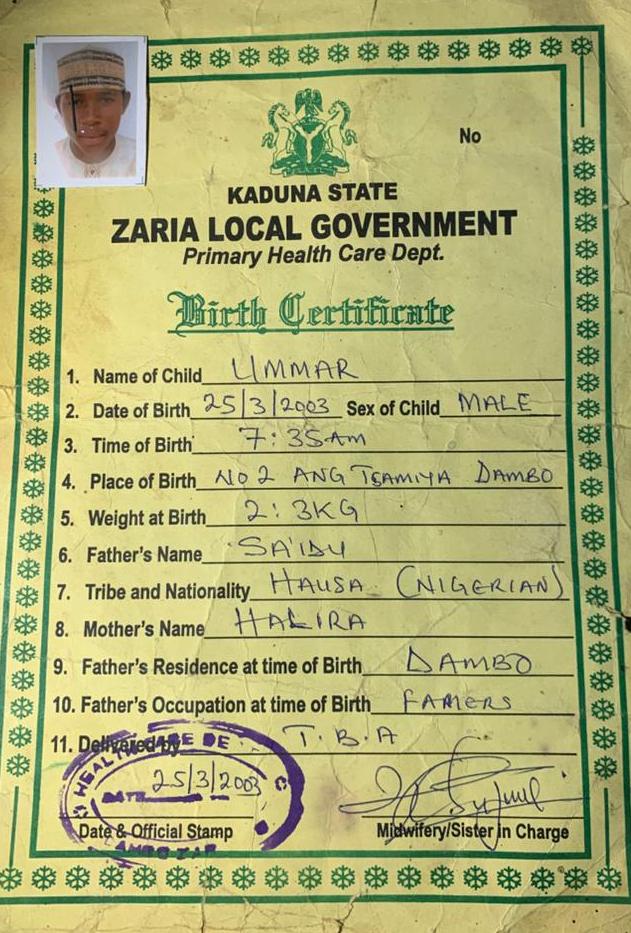 No
KADUNA STATE
ZARIA LOCAL GOVERNMENT
Primary Health Care Dept.
Birth Certificate
1. Name of Child UMMAR
2. Date of Birth 25/3/2003 Sex of Child MALE
3. Time of Birth 7:35AM
4. Place of Birth NO 2 ANG TSAMIYA DAMBO
5. Weight at Birth 2:3KG
6. Father's Name SA'IDU
7. Tribe and Nationality HAUSA (NIGERIAN)
8. Mother's Name HALIRA
9. Father's Residence at time of Birth DAMBO
10. Father's Occupation at time of Birth FAMERS
11. Delivered by T.B.A
HEALTH CARE DE
DATE 25/3/2003
Date & Official Stamp Midwifery/Sister in Charge